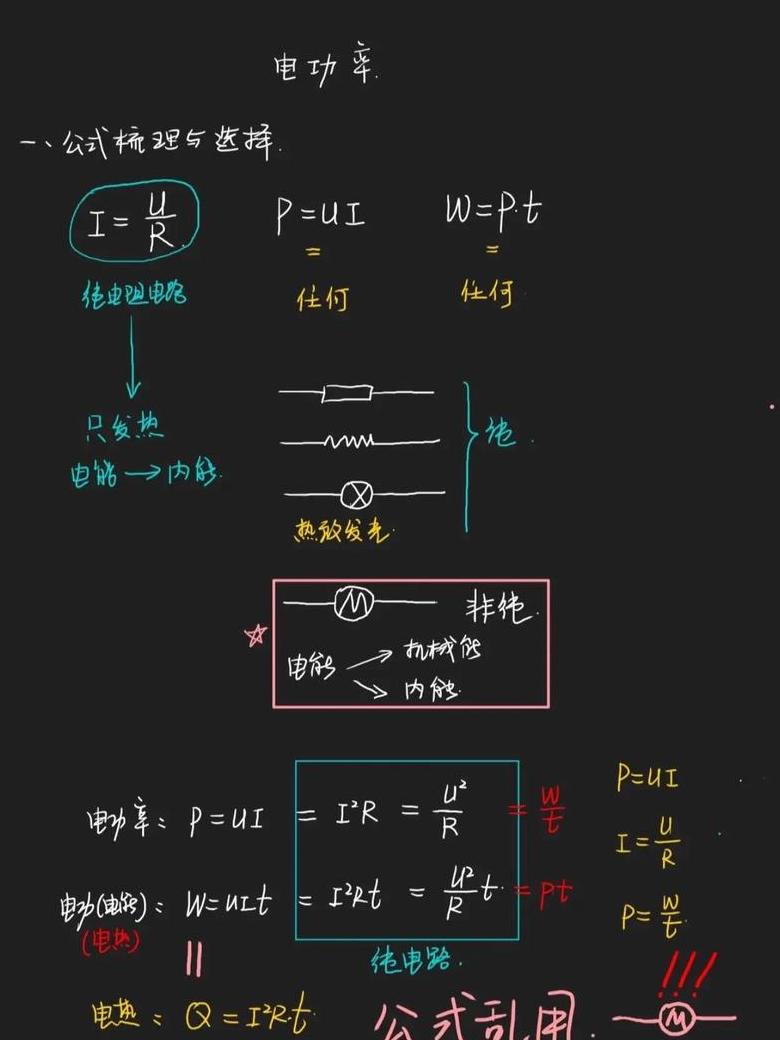 电功率.
一、公式梳理与选择.
I = U/R P = UI W = P·t
= =
纯电阻电路 任何 任何
只发热
电能 → 内能.
纯.
热致发光.
M 非纯.
☆
电能 → 机械能
↘ 内能.
P=UI
电功率: P = UI = I²R = U²/R = W/t
I = U/R
电功(电能): W = UIt = I²Rt = U²/R t. = Pt
P = W/t.
(电热)
纯电路.
|| !!!
电热: Q = I²R·t 公式乱用. M